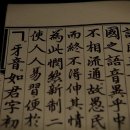 國之語音異乎中
不相流通故愚民
而終不得伸其情
為此憫然新制二
使人人易習便於
ㄱ牙音如君字初